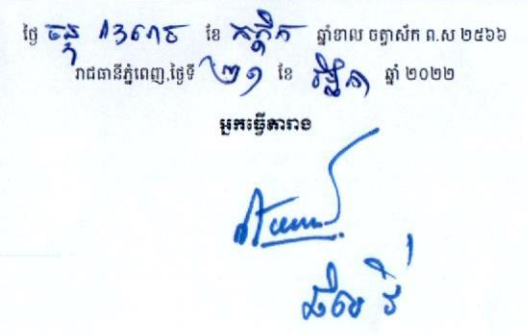 ថ្ងៃ ចន្ទ ១៣រោច ខែ កត្តិក ឆ្នាំខាល ចត្វាស័ក ព.ស ២៥៦៦
រាជធានីភ្នំពេញ,ថ្ងៃទី ២១ ខែ វិច្ឆិកា ឆ្នាំ ២០២២
អ្នកធ្វើតារាង